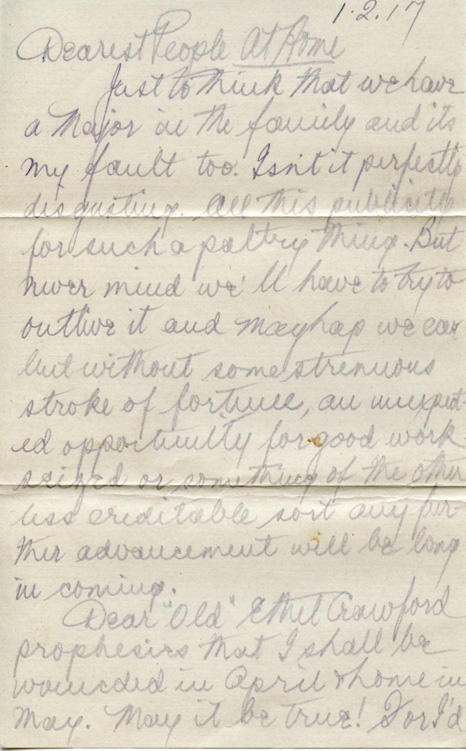 1.2.17
Dearest People At Home
Just to think that we have
a Major in the family and its
my fault too. Isn't it perfectly
disgusting. All this publicity
for such a paltry thing. But
never mind we'll have to try to
outlive it and mayhap we can
but without some strenuous
stroke of fortune, an unexpect-
ed opportunity for good work
seized or something of the other
less creditable sort any fur-
ther advancement will be long
in coming.
Dear "Old" Ethel Crawford
prophesies that I shall be
wounded in April & home in
May. May it be true! For I'd